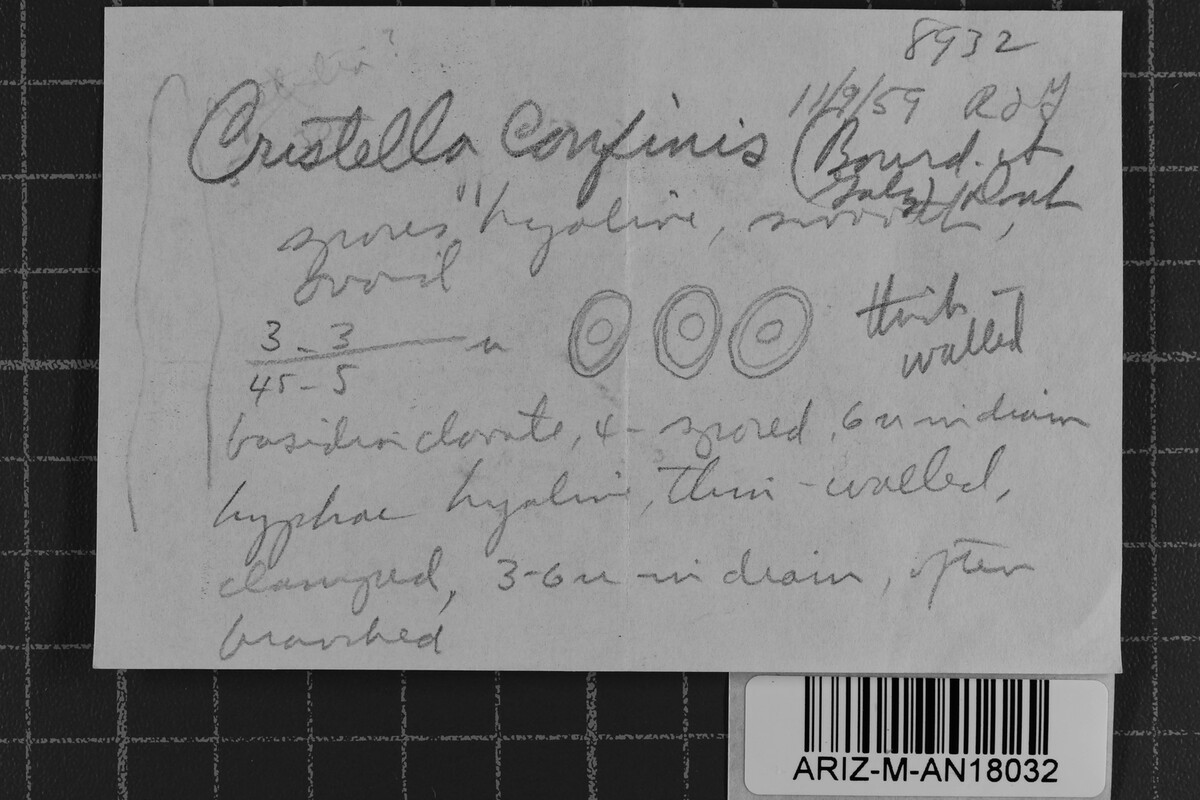 8932
11/9/59 RLG
Cristella confinis (Bourd. et
Galz) Donk
spores hyaline, smooth,
ovoid
3-3
45-5 u
thick
walled
basidia clavate, 4-spored, 6 u in diam
hyphae hyaline, thin-walled,
clamped, 3-6 u in diam, often
branched
ARIZ-M-AN18032